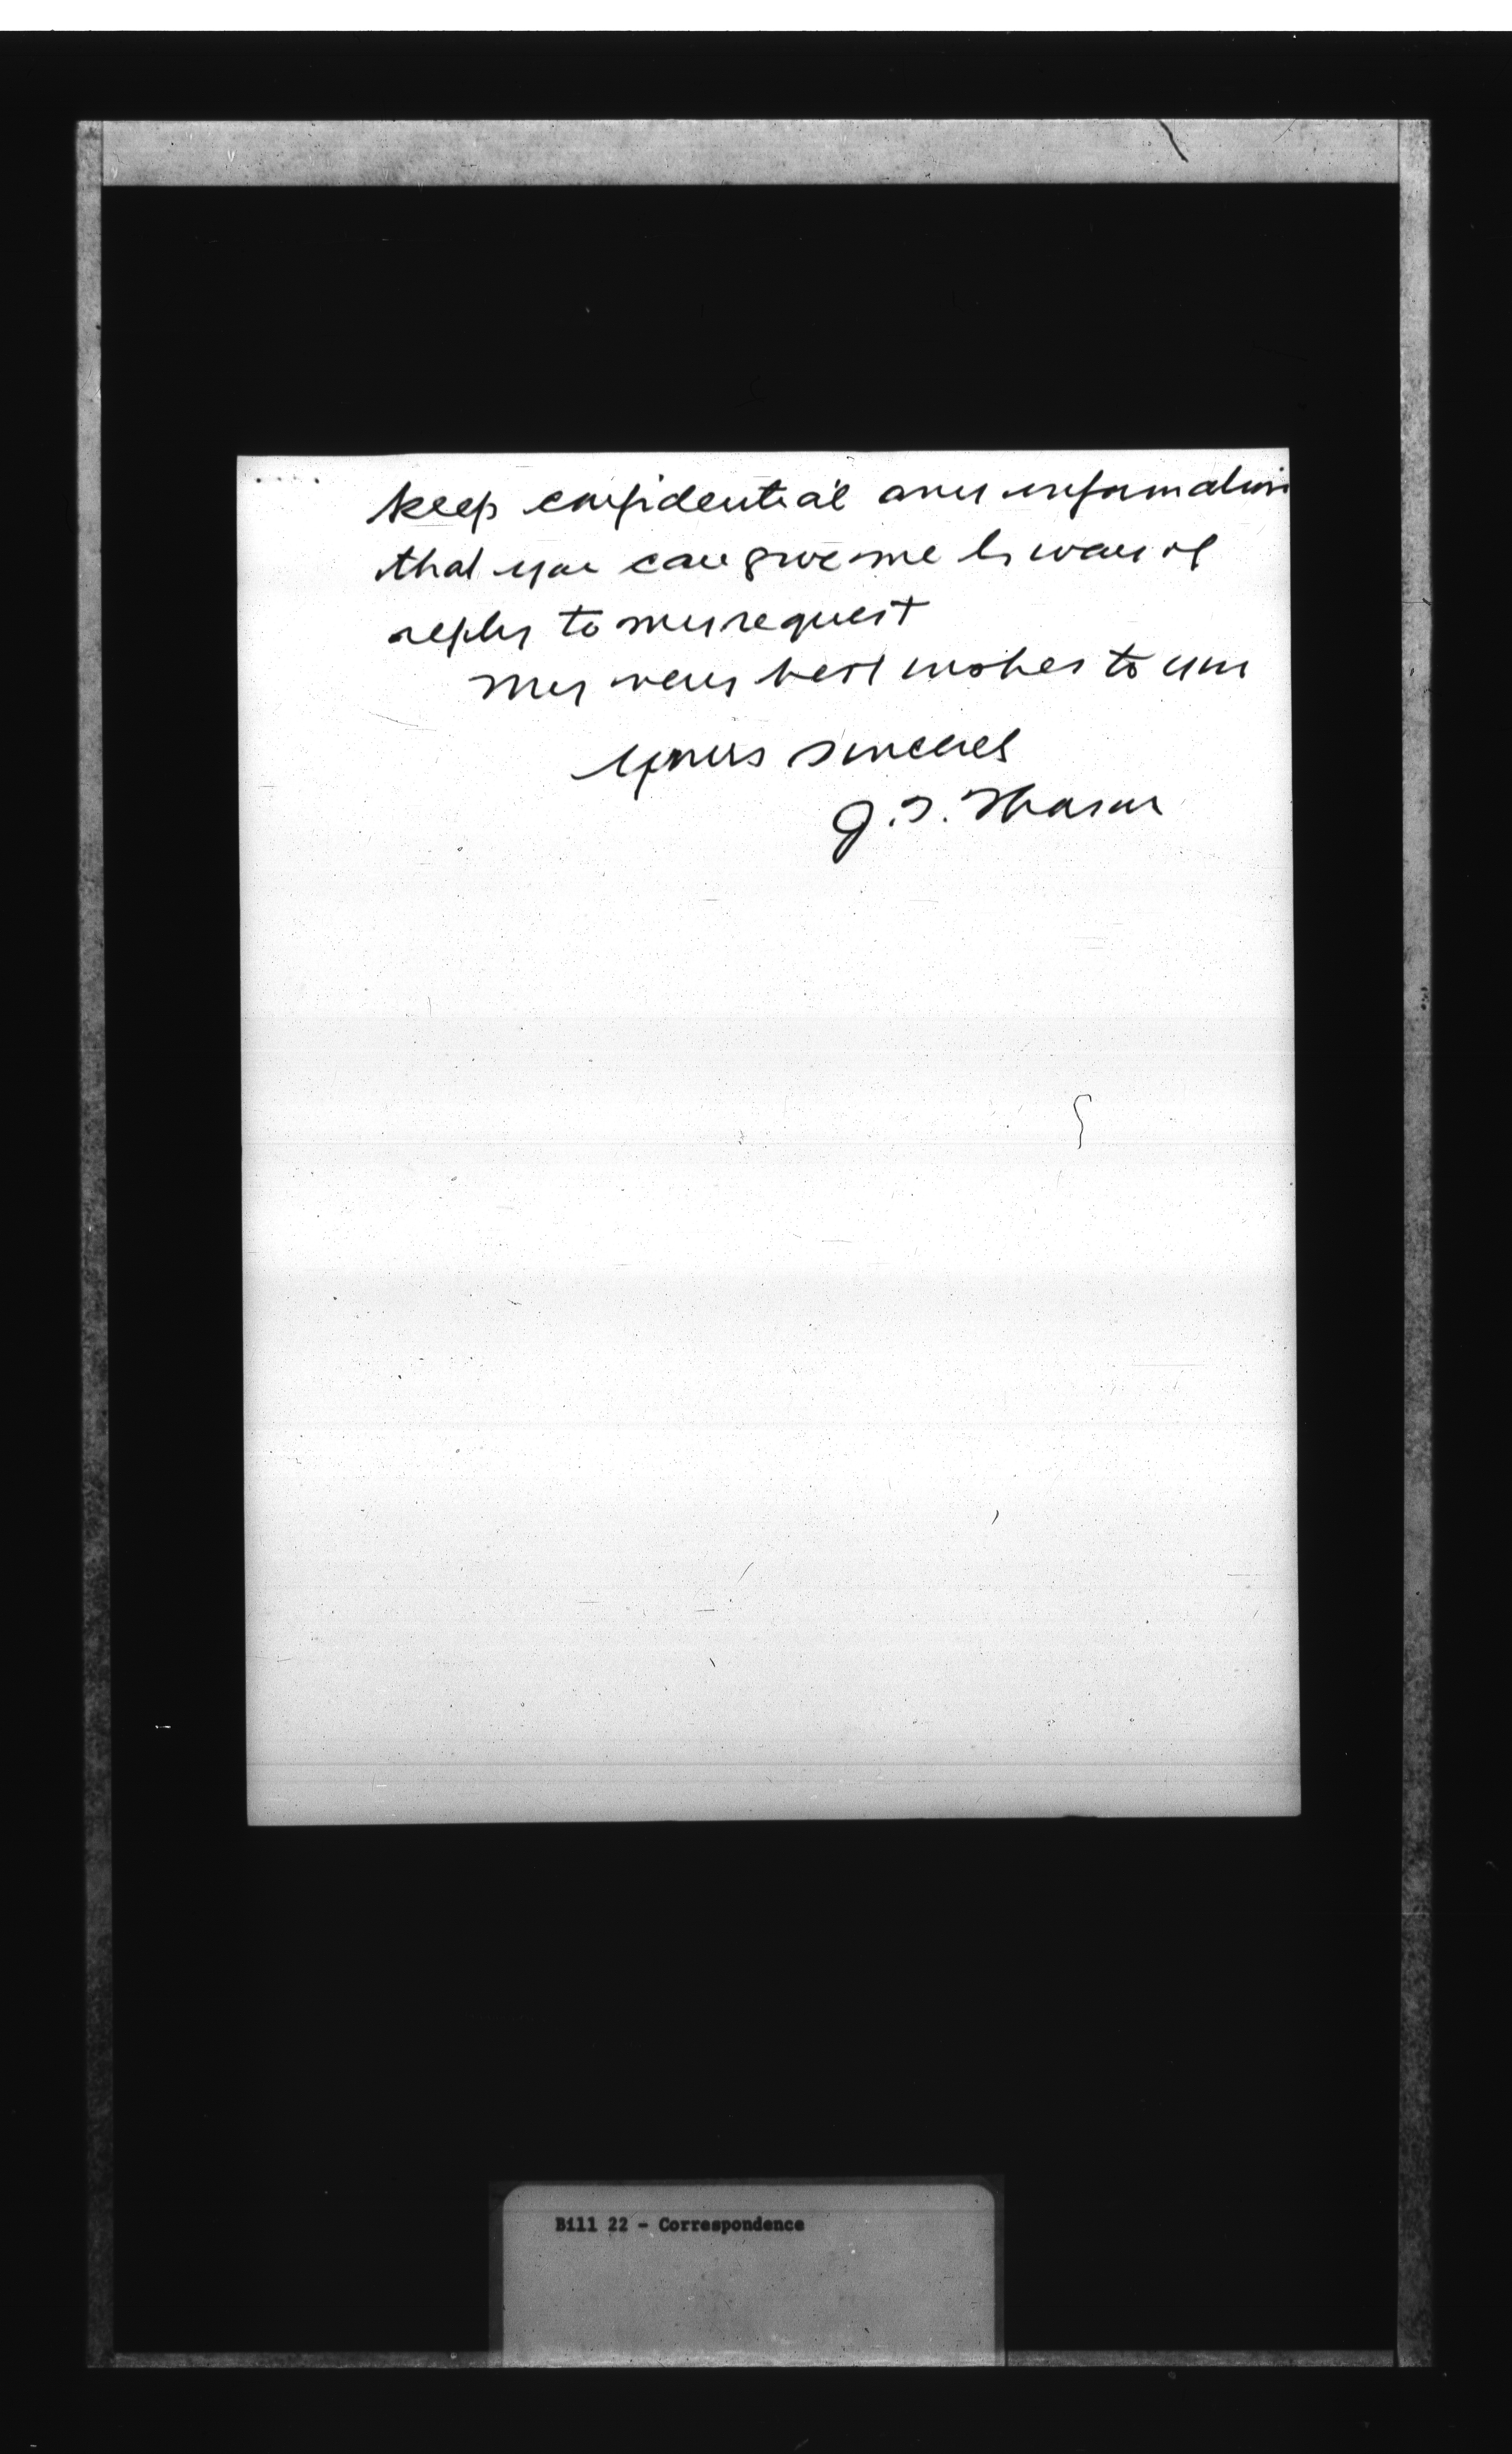 keep confidential any information
that you can give me by way of
reply to my request
My very best wishes to you
Yours sincerely
J. S.
Bill 22 - Correspondence